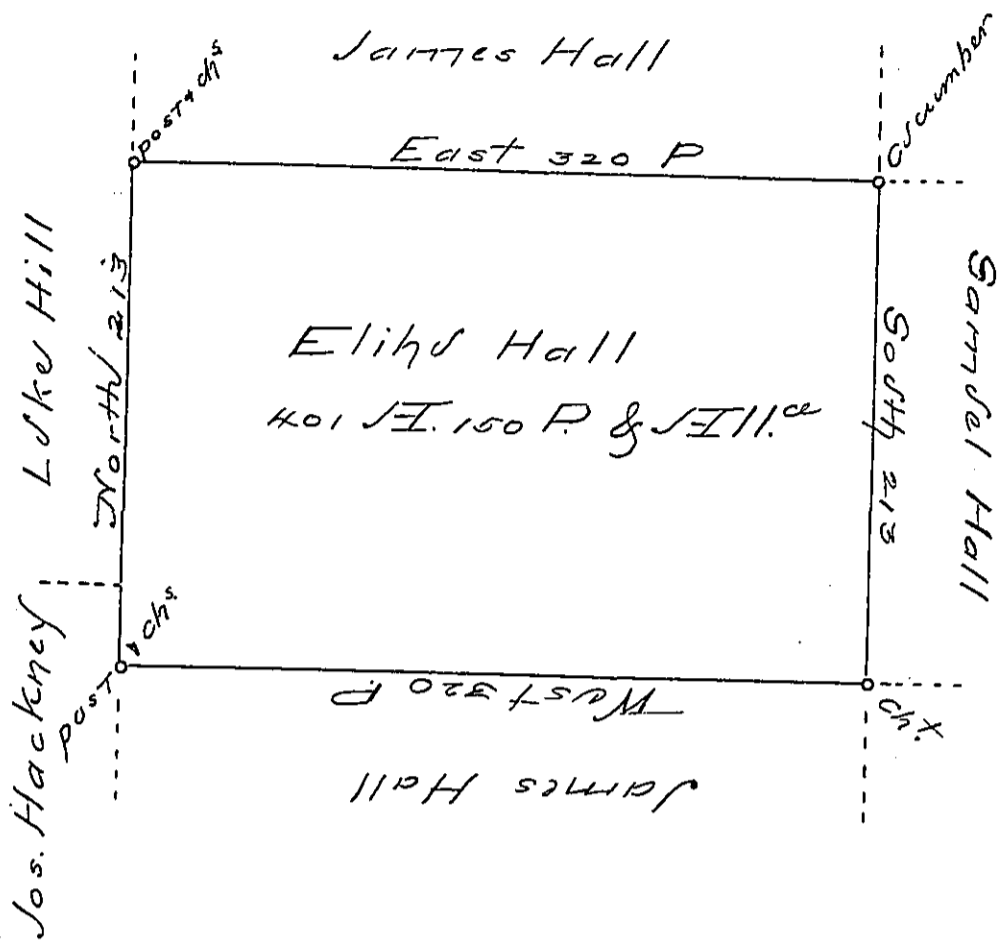 James Hall
post & chs.
East 320 P
Cucumber
Luke Hill
North 213
Elihu Hall
401 A. 150 P. & All.ce
South 213
Samuel Hall
Jos. Hackney
post & chs.
West 320 P
James Hall